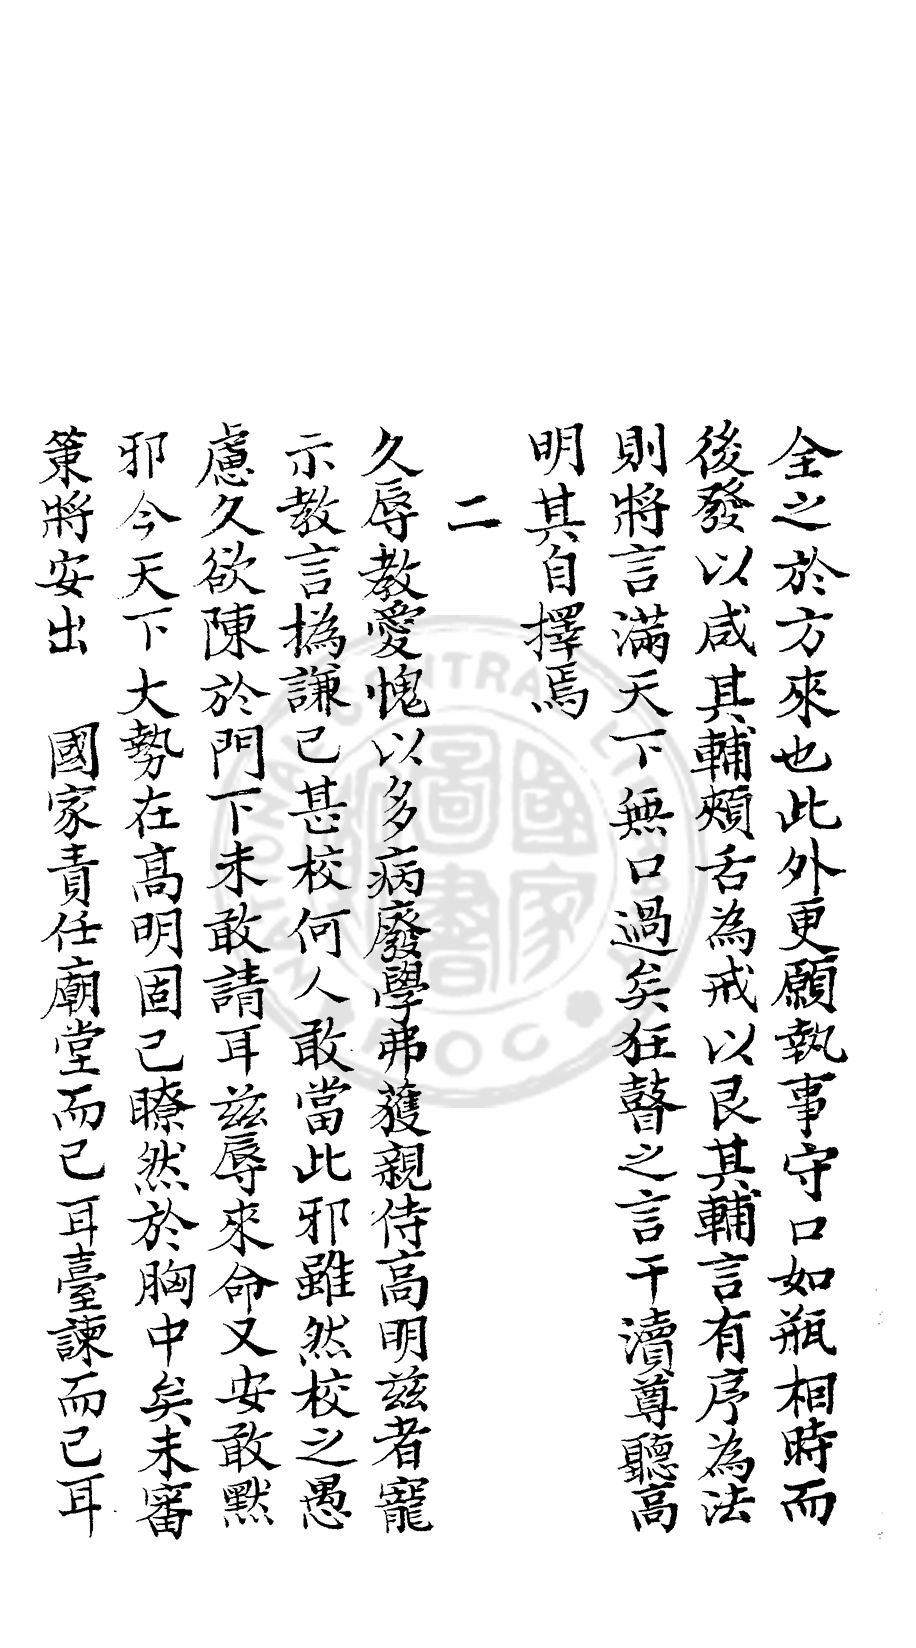 全之於方來也此外更願執事守口如瓶相時而
後發以咸其輔頰舌為戒以艮其輔言有序為法
則將言滿天下無口過矣狂瞽之言干瀆尊聽高
明其自擇焉
二
久辱教愛愧以多病廢學弗獲親侍高明茲者寵
示教言撝謙已甚校何人敢當此邪雖然校之愚
慮久欲陳於門下未敢請耳茲辱來命又安敢默
邪今天下大勢在高明固已瞭然於胸中矣未審
策將安出 國家責任廟堂而已耳臺諫而已耳